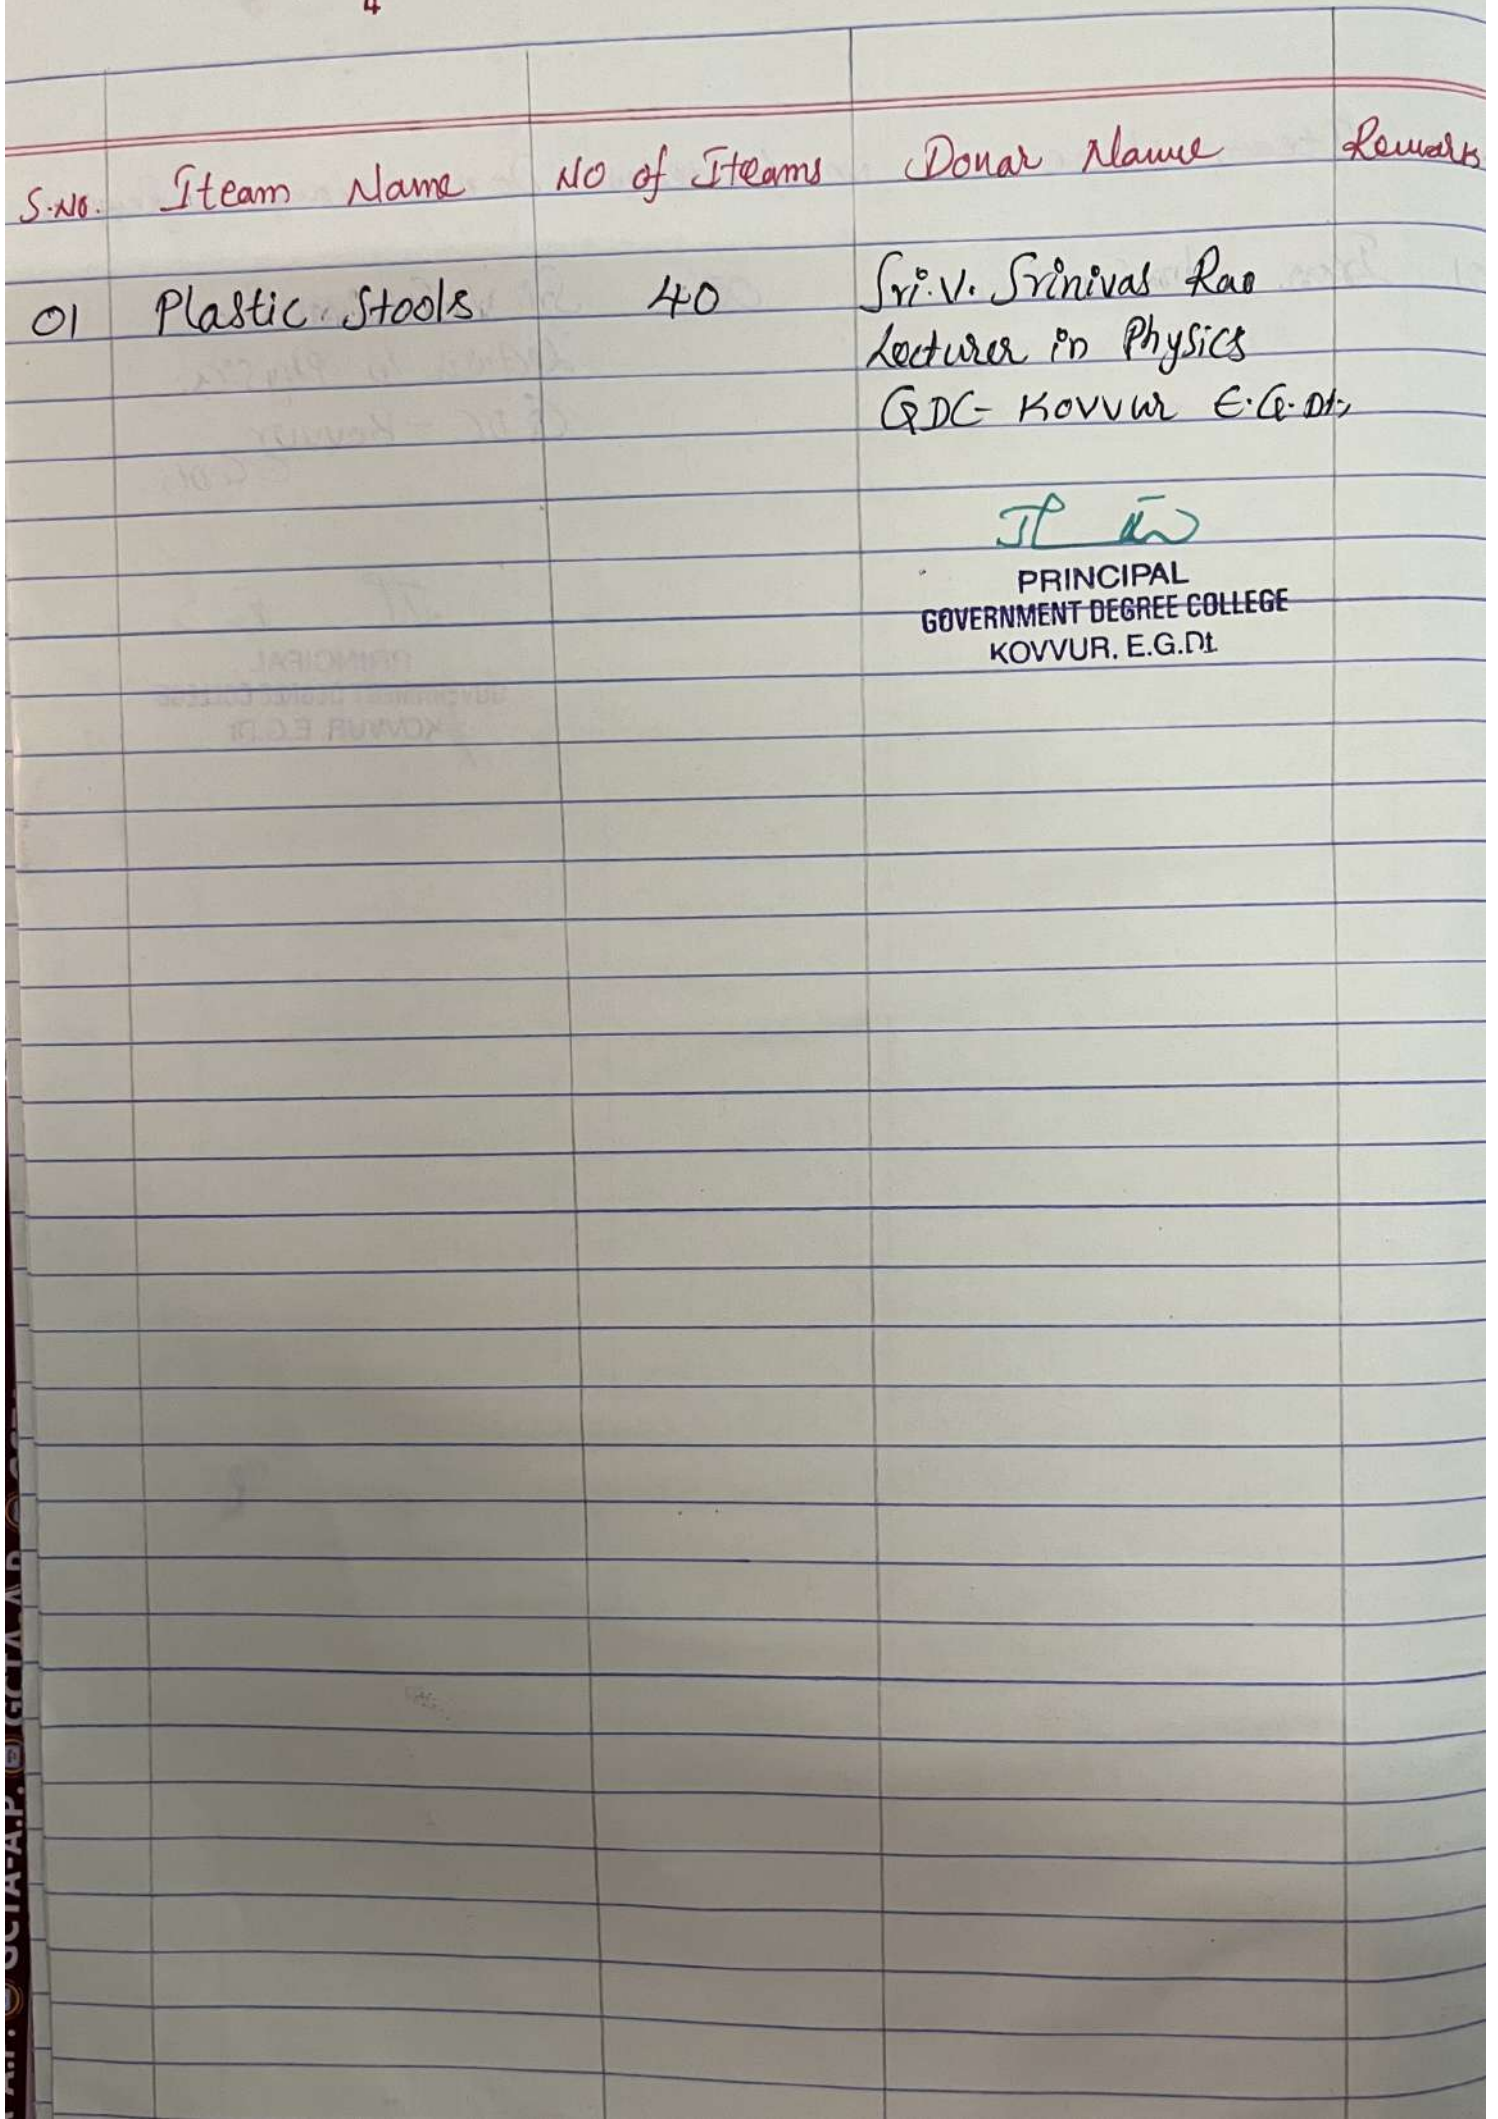 4
S.No. Iteam Name No of Iteams Donar Name Remarks
01 Plastic Stools 40 Sri. V. Srinivas Rao
Lecturer in Physics
GDC Kovvur E.G.Dt,
PRINCIPAL
GOVERNMENT DEGREE COLLEGE
KOVVUR. E.G.Dt
GCTA-A.P. GCTA-A.P.